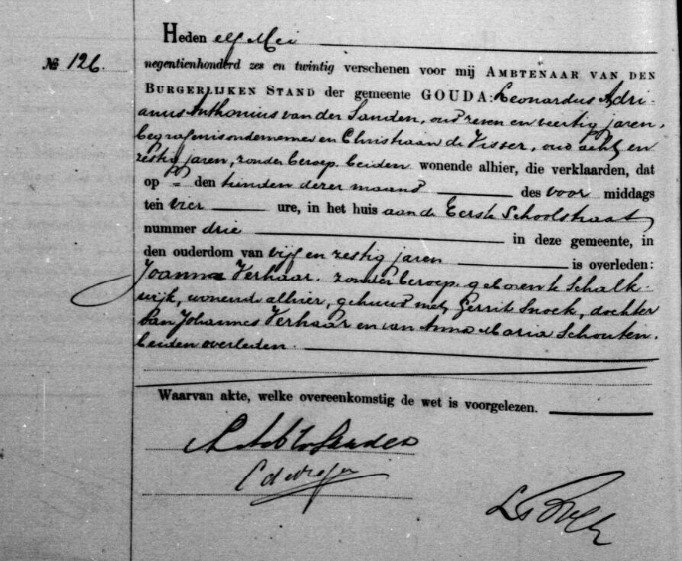 Heden elf Mei
№ 126.
negentienhonderd zes en twintig verschenen voor mij Ambtenaar van den
Burgerlijken Stand der gemeente GOUDA: Leonardus Adri-
anus Anthonius van der Sanden, oud zeven en veertig jaren,
begrafenisondernemer en Christiaan de Visser, oud acht en
zestig jaren, zonder beroep, beiden wonende alhier, die verklaarden, dat
op den tienden dezer maand des voor middags
ten vier ure, in het huis aan de Eerste Schoolstraat
nummer drie in deze gemeente, in
den ouderdom van vijf en zestig jaren is overleden:
Joanna Verhaar, zonder beroep, geboren te Schalk-
wijk, wonend alhier, gehuwd met Gerrit Snoek, dochter
van Johannes Verhaar en van Anna Maria Schouten,
beiden overleden.
Waarvan akte, welke overeenkomstig de wet is voorgelezen.
C de Visser